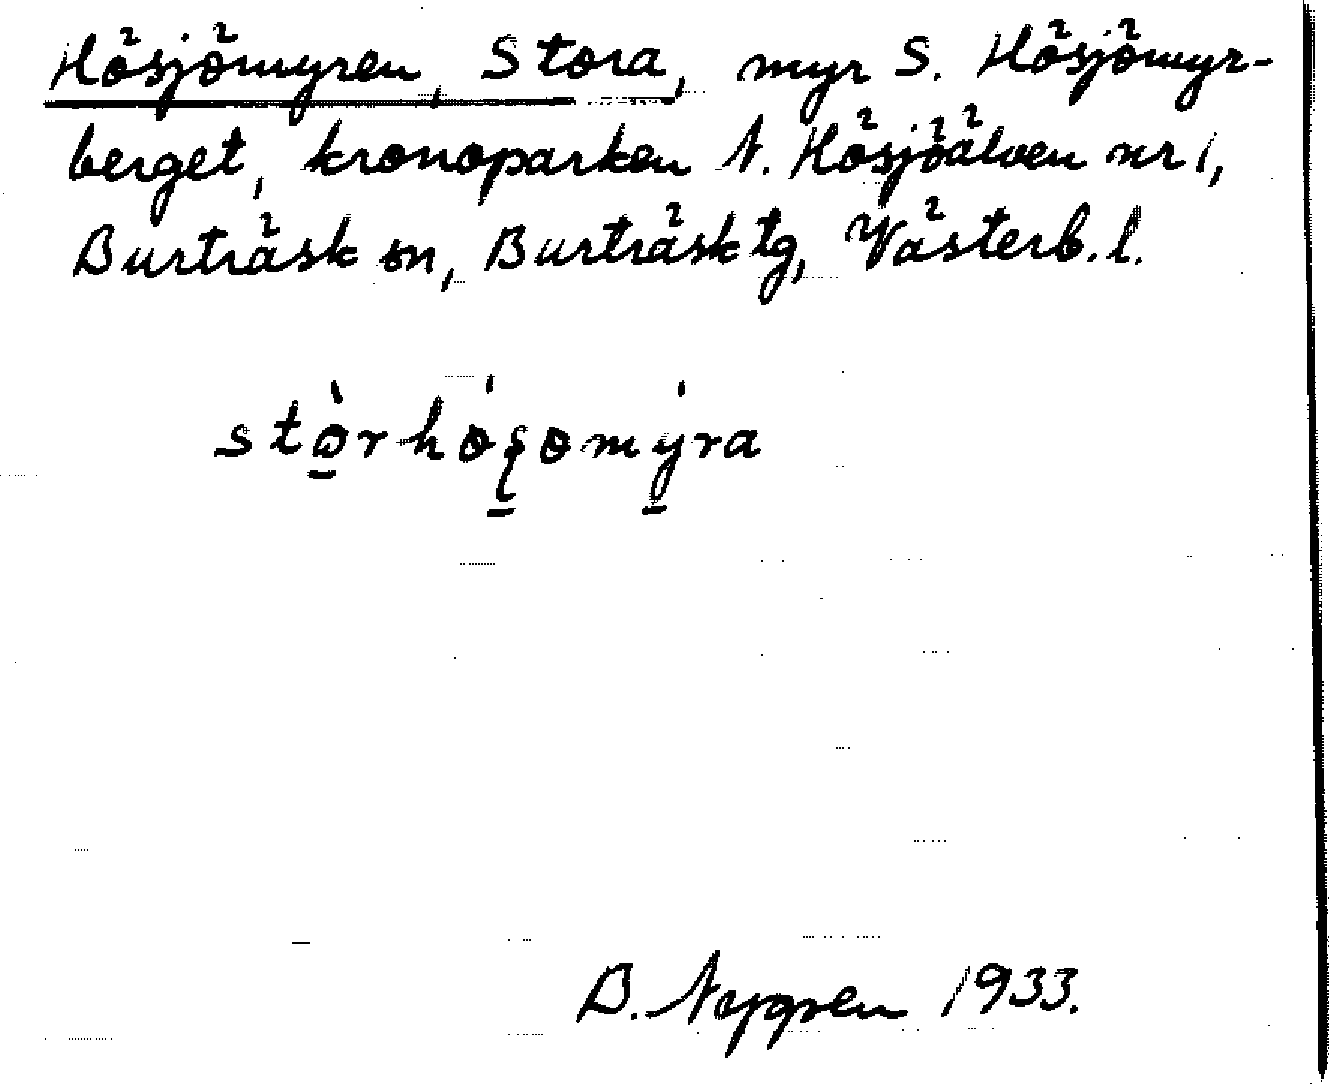 Hösjömyren, Stora, myr S. Hösjömyr-
berget, kronoparken N. Hösjöälven nr 1,
Burträsk sn, Burträsk tg, Västerb. l.
stòrhó̤ʂomýra
B. Nygren 1933.